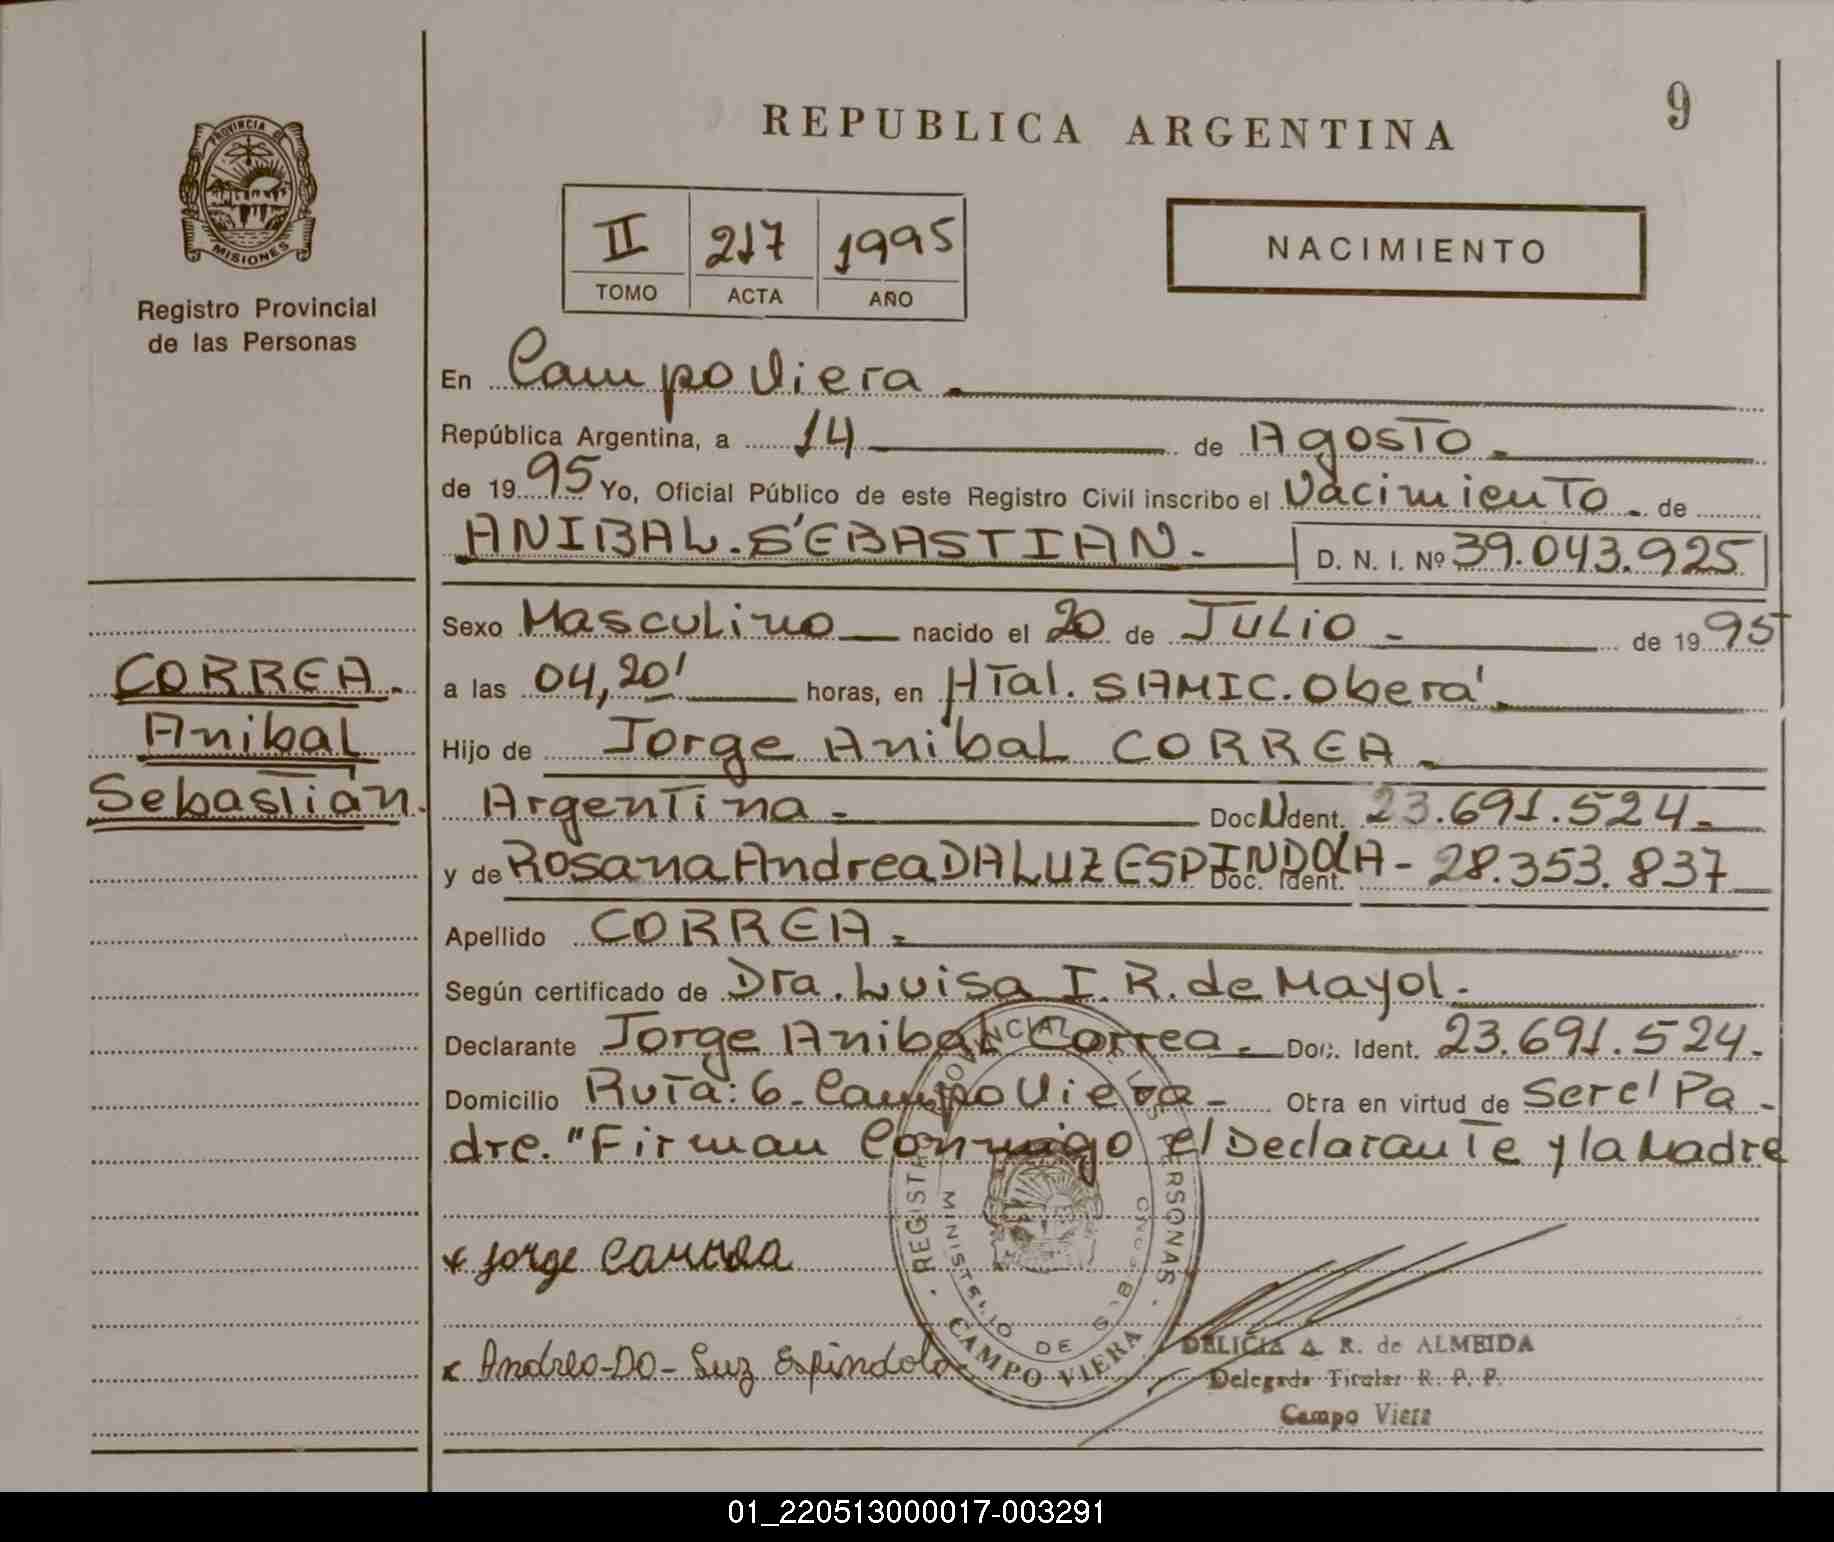 REPUBLICA ARGENTINA
9
PROVINCIA DE
MISIONES
Registro Provincial
de las Personas
II 217 1995
TOMO ACTA AÑO
NACIMIENTO
En Campo Viera.
República Argentina, a 14 de Agosto.
de 1995 Yo, Oficial Público de este Registro Civil inscribo el Nacimiento. de
ANIBAL. SEBASTIAN. D. N. I. Nº 39.043.925
Sexo Masculino nacido el 20 de Julio - de 1995
a las 04,20' horas, en HTal. SAMIC. Oberá.
Hijo de Jorge Anibal CORREA.
Argentina.- Doc. Ident. 23.691.524.-
y de Rosana Andrea DA LUZ ESPINDOLA - Doc. Ident. 28.353.837
Apellido CORREA.-
Según certificado de Dra. Luisa I. R. de Mayol.-
Declarante Jorge Anibal Correa.- Doc. Ident. 23.691.524.
Domicilio Ruta: 6- Campo Viera- Obra en virtud de Ser el Pa-
dre. "Firman Conmigo el Declarante y la Madre
CORREA.
Anibal
Sebastián.
x Jorge Correa
x Andrea-Da-Luz Espindola
REGISTRO PROVINCIAL DE LAS PERSONAS
MINISTERIO DE
CAMPO VIERA
DELICIA A. R. de ALMEIDA
Delegada Titular R. P. P.
Campo Viera
01_220513000017-003291